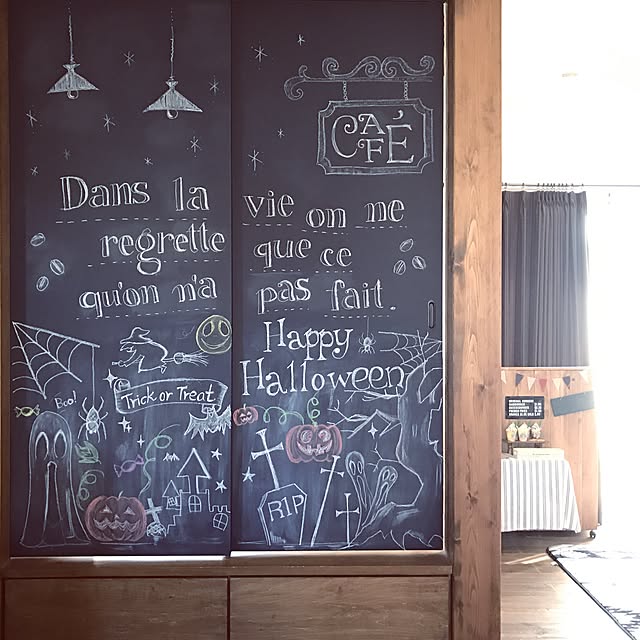 CAFÉ
Dans la vie on ne
regrette que ce
qu'on n'a pas fait.
Happy
Halloween
Boo!
Trick or Treat
RIP